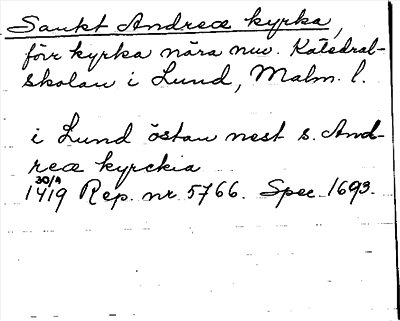 Sankt Andreæ kyrka,
förr kyrka nära nuv. Katedral-
skolan i Lund, Malm. l.
i Lund östan nest s. And-
reæ kyrckia
30/9
1419 Rep. nr 5766. Spec. 1693.